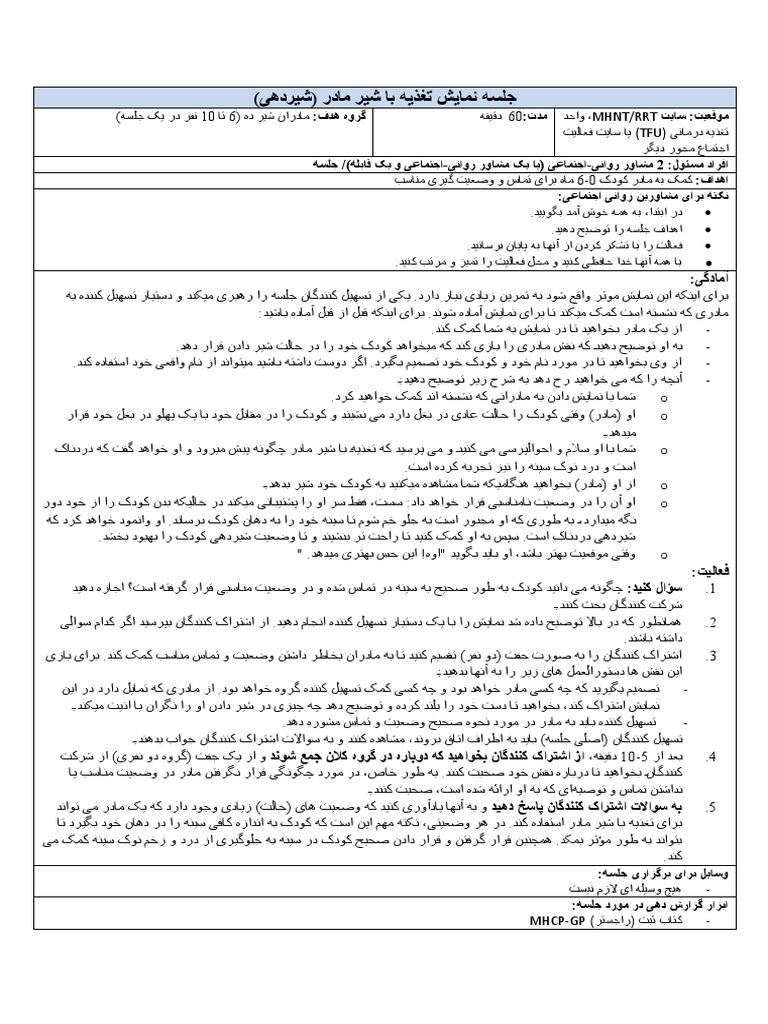 جلسه نمایش تغذیه با شیر مادر (شیردهی)
موقعیت: سایت MHNT/RRT، واحد
تغذیه درمانی (TFU) یا سایت فعالیت
اجتماع محور دیگر
مدت: 60 دقیقه
گروه هدف: مادران شیر ده (6 تا 10 نفر در یک جلسه)
افراد مسئول: 2 مشاور روانی-اجتماعی (با یک مشاور روانی-اجتماعی و یک قابله)/ جلسه
اهداف: کمک به مادر کودک 0-6 ماه برای تماس و وضعیت گیری مناسب
نکته برای مشاورین روانی اجتماعی:
• در ابتدا، به همه خوش آمد بگویید.
• اهداف جلسه را توضیح دهید.
• فعالت را با تشکر کردن از آنها به پایان برسانید.
• با همه آنها خدا حافظی کنید و محل فعالیت را تمیز و مرتب کنید.
آمادگی:
برای اینکه این نمایش موثر واقع شود به تمرین زیادی نیاز دارد. یکی از تسهیل کنندگان جلسه را رهبری میکند و دستیار تسهیل کننده به
مادری که نشسته است کمک میکند تا برای نمایش آماده شوند. برای اینکه قبل از قبل آماده باشید:
- از یک مادر بخواهید تا در نمایش به شما کمک کند.
- به او توضیح دهید که نقش مادری را بازی کند که میخواهد کودک خود را در حالت شیر دادن قرار دهد.
- از وی بخواهید تا در مورد نام خود و کودک خود تصمیم بگیرد. اگر دوست داشته باشید میتواند از نام واقعی خود استفاده کند.
- آنچه را که می خواهید رخ دهد به شرح زیر توضیح دهید:
o شما با نمایش دادن به مادرانی که نشسته اند کمک خواهید کرد.
o او (مادر) وقتی کودک را حالت عادی در بغل دارد می نشیند و کودک را در مقابل خود با یک پهلو در بغل خود قرار
میدهد.
o شما با او سلام و احوالپرسی می کنید و می پرسید که تغذیه با شیر مادر چگونه پیش میرود و او خواهد گفت که دردناک
است و درد نوک سینه را نیز تجربه کرده است.
o از او (مادر) بخواهید هنگامیکه شما مشاهده میکنید به کودک خود شیر بدهد.
o او آن را در وضعیت نامناسبی قرار خواهد داد: سست، فقط سر او را پشتیبانی میکند در حالیکه بدن کودک را از خود دور
نگه میدارد، به طوری که او مجبور است به جلو خم شوم تا سینه خود را به دهان کودک برساند. او وانمود خواهد کرد که
شیردهی دردناک است. سپس به او کمک کنید تا راحت تر بنشیند و تا وضعیت شیردهی کودک را بهبود بخشد.
o وقتی موقعیت بهتر باشد، او باید بگوید "اوه! این حس بهتری میدهد. "
فعالیت:
1. سؤال کنید: چگونه می دانید کودک به طور صحیح به سینه در تماس شده و در وضعیت مناسبی قرار گرفته است؟ اجازه دهید
شرکت کنندگان بحث کنند.
2. همانطور که در بالا توضیح داده شد نمایش را با یک دستیار تسهیل کننده انجام دهید. از اشتراک کنندگان بپرسید اگر کدام سوالی
داشته باشند.
3. اشتراک کنندگان را به صورت جفت (دو نفر) تقسیم کنید تا به مادران بخاطر داشتن وضعیت و تماس مناسب کمک کند. برای بازی
این نقش ها دستورالعمل های زیر را به آنها بدهید:
- تصمیم بگیرید که چه کسی مادر خواهد بود و چه کسی کمک تسهیل کننده گروه خواهد بود. از مادری که تمایل دارد در این
نمایش اشتراک کند، بخواهید تا دست خود را بلند کرده و توضیح دهد چه چیزی در شیر دادن او را نگران یا اذیت میکند.
- تسهیل کننده باید به مادر در مورد نحوه صحیح وضعیت و تماس مشوره دهد.
تسهیل کنندگان (اصلی جلسه) باید به اطراف اتاق بروند، مشاهده کنند و به سوالات اشتراک کنندگان جواب بدهند.
4. بعد از 5-10 دقیقه، از اشتراک کنندگان بخواهید که دوباره در گروه کلان جمع شوند و از یک جفت (گروه دو نفری) از شرکت
کنندگان بخواهید تا درباره نقش خود صحبت کنند. به طور خاص، در مورد چگونگی قرار نگرفتن مادر در وضعیت مناسب یا
نداشتن تماس و توصیه‌ای که به او ارائه شده است، صحبت کنند.
5. به سوالات اشتراک کنندگان پاسخ دهید و به آنها یادآوری کنید که وضعیت های (حالت) زیادی وجود دارد که یک مادر می تواند
برای تغذیه با شیر مادر استفاده کند. در هر وضعیتی، نکته مهم این است که کودک به اندازه کافی سینه را در دهان خود بگیرد تا
بتواند به طور مؤثر بمکد. همچنین قرار گرفتن و قرار دادن صحیح کودک در سینه به جلوگیری از درد و زخم نوک سینه کمک می
کند.
وسایل برای برگزاری جلسه:
- هیچ وسیله ای لازم نیست
ابزار گزارش دهی در مورد جلسه:
- کتاب ثبت (راجستر) MHCP-GP